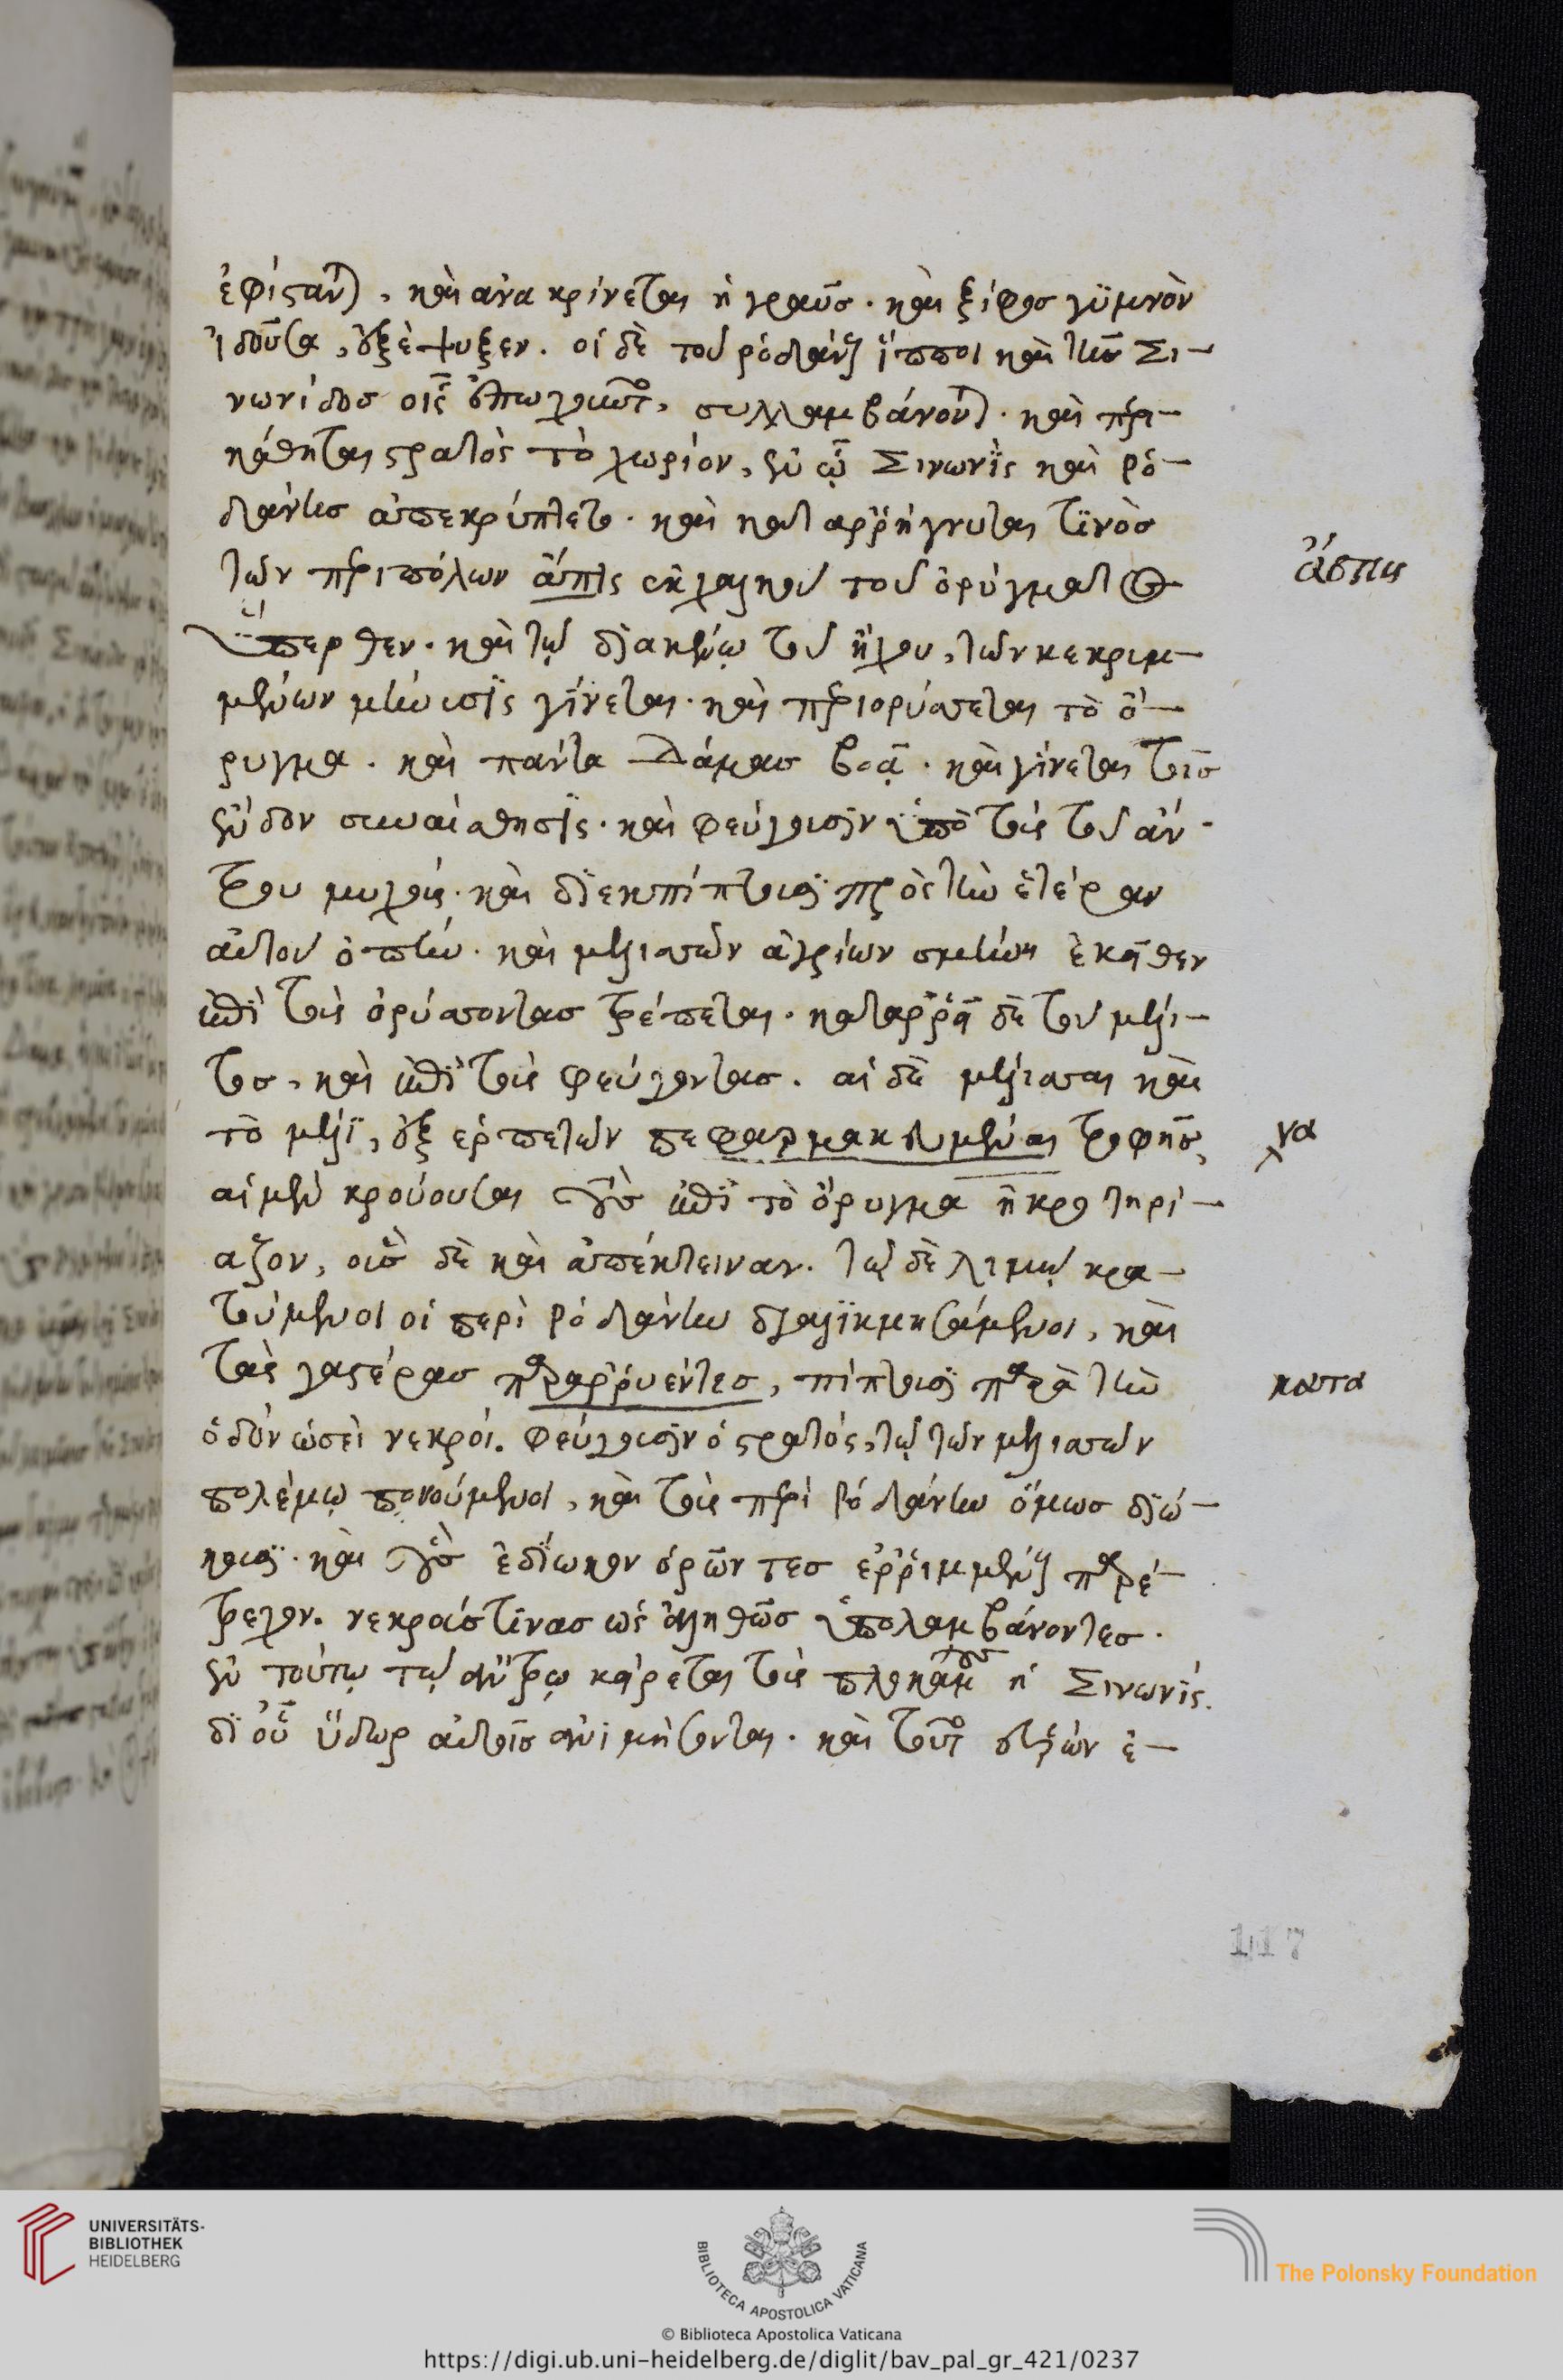 ἐφίσταν), καὶ ἀνακρίνεται ἡ γραῦς. καὶ ξίφος γυμνὸν
ἰδοῦσα, ἐξέψυξεν. οἱ δὲ τοῦ ῥοδάνους ἵπποι καὶ τῆς Σι-
νωνίδος οἷς ἐπωχοῦντο, συλλαμβάνον). καὶ περι-
κάθηται στρατὸς τὸ χωρίον, ἐν ᾧ Σινωνὶς καὶ Ῥο-
δάνης ἀπεκρύπτετο. καὶ καταρρήγνυται τινὸς
τῶν περιπόλων ἄπις ἐκ χαλκοῦ τοῦ ὀρύγματος
ὕπερθεν. καὶ τῷ διακένῳ τοῦ ἤχου, τῶν κεκριμ-
μένων μήνυσις γίνεται. καὶ περιορύσσεται τὸ ὄ-
ρυγμα. καὶ πάντα Δάμας βοᾷ. καὶ γίνεται τοῖς
ἔνδον συναίσθησις. καὶ φεύγουσιν ὑπὸ τοὺς τοῦ ἄν-
τρου μυχούς. καὶ διεκπίπτουσι πρὸς τὴν ἑτέραν
αὐτοῦ ὀπήν. καὶ μελισσῶν ἀγρίων σμῆνος ἐκεῖθεν
ἐπὶ τοὺς ὀρύσσοντας τρέπεται. καταρρεῖ δὲ τοῦ μέλι-
τος, καὶ ἐπὶ τοὺς φεύγοντας. αἱ δὲ μέλισσαι καὶ
τὸ μέλι, ἐξ ἑρπετῶν πεφαρμακευμέναι τροφῆς,
αἱ μὲν κρούουσαι τοὺς ἐπὶ τὸ ὄρυγμα ἠκρωτηρί-
αζον, οὓς δὲ καὶ ἀπέκτειναν. τῷ δὲ λιμῷ κρα-
τούμενοι οἱ περὶ Ῥοδάνην διαλιχμησάμενοι, καὶ
τὰς γαστέρας παραρρυέντες, πίπτουσι παρὰ τὴν
ὁδὸν ὡσεὶ νεκροί. φεύγουσιν ὁ στρατός, τῷ τῶν μελισσῶν
πολέμῳ πονούμενοι, καὶ τοὺς περὶ Ῥοδάνην ὅμως διώ-
κουσι. καὶ οὓς ἐδίωκον ὁρῶντες ἐρριμμένους παρέ-
τρεχον. νεκροὺς τινὰς ὡς ἀληθῶς ὑπολαμβάνοντες.
ἐν τούτῳ τῷ ἄντρῳ κείρεται τοὺς πλοκάμους ἡ Σινωνίς.
δι' οὗ ὕδωρ αὐτοῖς ἀνιμήσονται. καὶ τοῦτο εὑρὼν ἐ-
ἄσπις
να
κατα
117
UNIVERSITÄTS-
BIBLIOTHEK
HEIDELBERG
BIBLIOTECA APOSTOLICA VATICANA
© Biblioteca Apostolica Vaticana
The Polonsky Foundation
https://digi.ub.uni-heidelberg.de/diglit/bav_pal_gr_421/0237